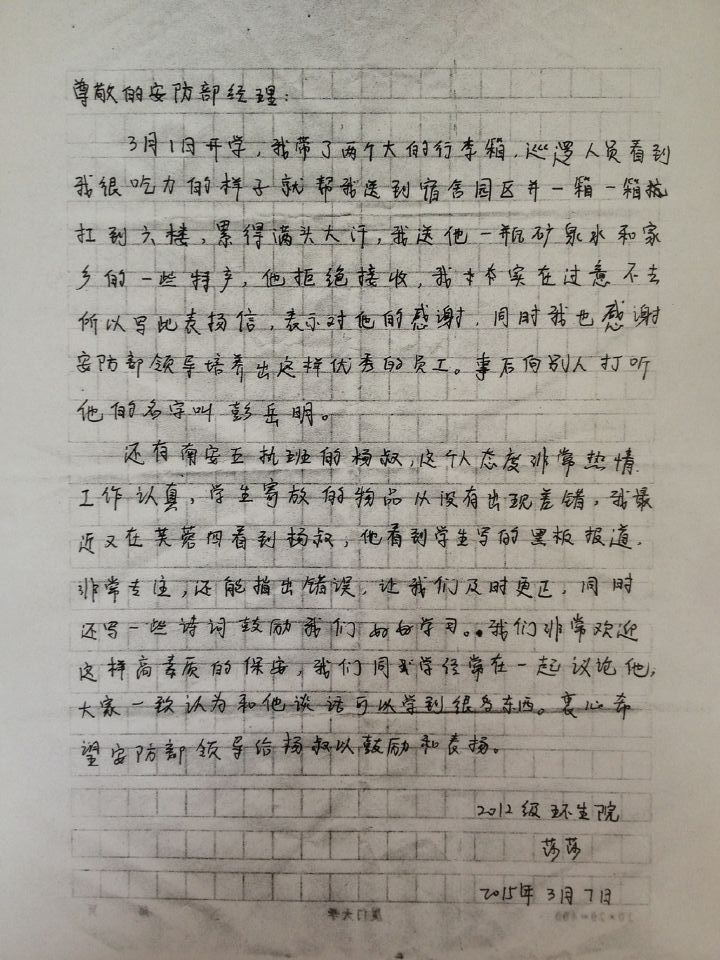 尊敬的安防部经理：
3月1日开学，我带了两个大的行李箱，巡逻人员看到
我很吃力的样子就帮我送到宿舍园区并一箱一箱
扛到六楼，累得满头大汗，我送他一瓶矿泉水和家
乡的一些特产，他拒绝接收，我实在过意不去
所以写此表扬信，表示对他的感谢，同时我也感谢
安防部领导培养出这样优秀的员工。事后向别人打听
他的名字叫彭岳明。
还有南安五执班的杨叔，这个人态度非常热情，
工作认真，学生寄放的物品从没有出现差错，我最
近又在芙蓉四看到杨叔，他看到学生写的黑板报道，
非常专注，还能指出错误，让我们及时更正，同时
还写一些诗词鼓励我们好好学习。我们非常欢迎
这样高素质的保安，我们同学经常在一起议论他，
大家一致认为和他谈话可以学到很多东西。衷心希
望安防部领导给杨叔以鼓励和表扬。
2012级环生院
莎莎
2015年3月7日
厦门大学
20×20=400